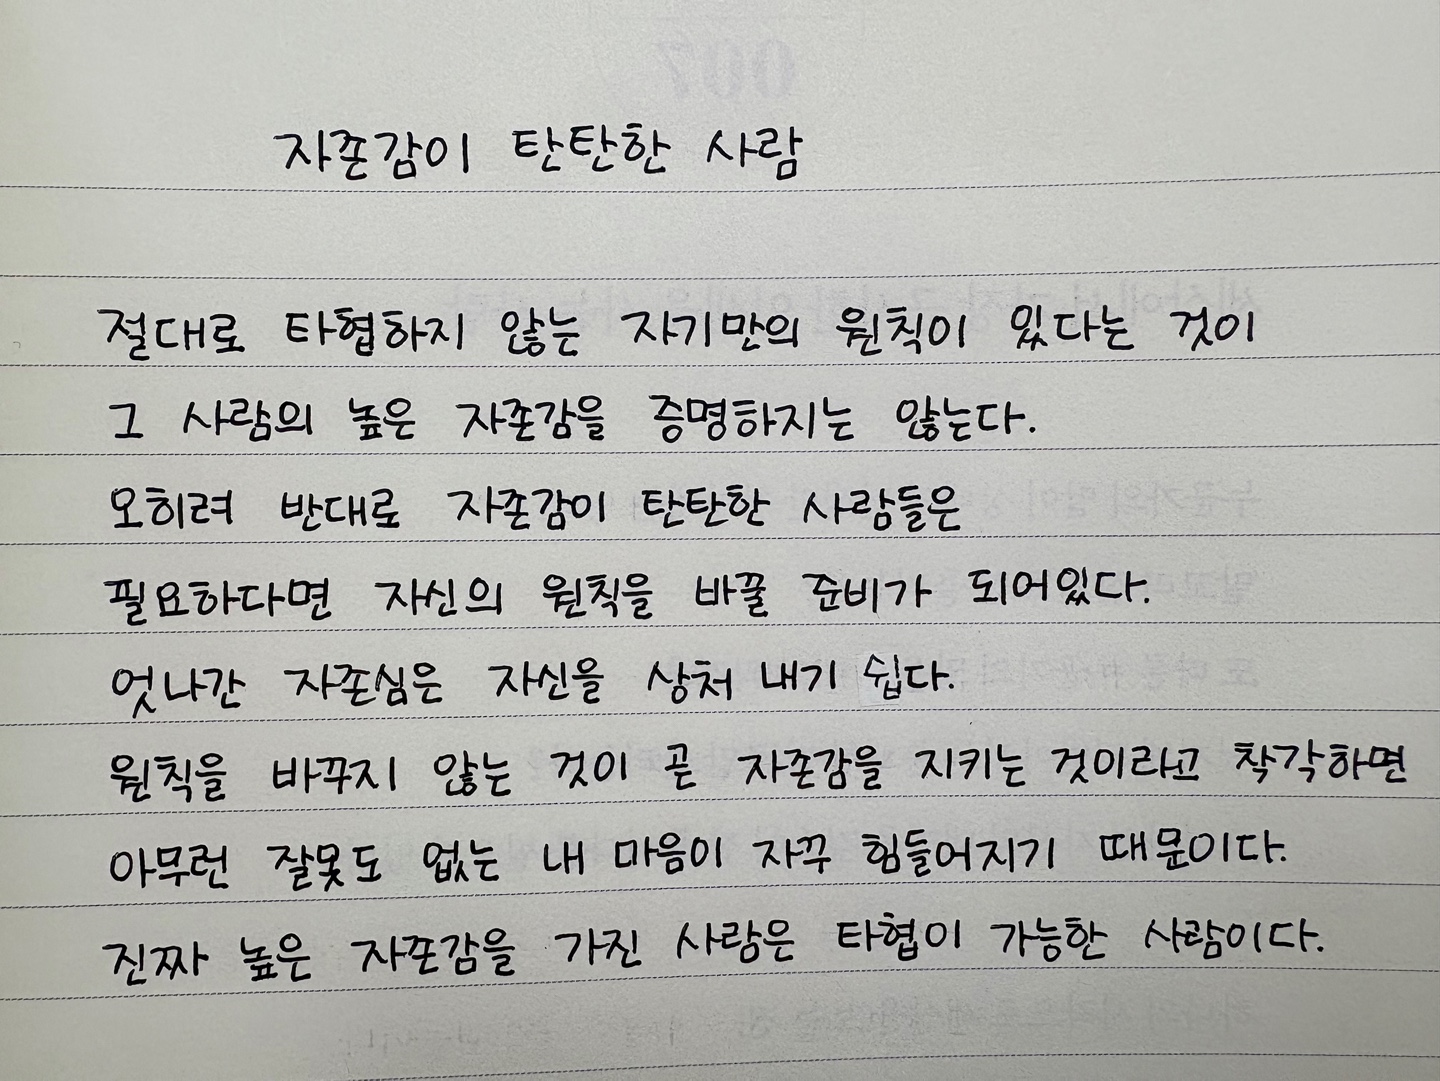 자존감이 탄탄한 사람
절대로 타협하지 않는 자기만의 원칙이 있다는 것이
그 사람의 높은 자존감을 증명하지는 않는다.
오히려 반대로 자존감이 탄탄한 사람들은
필요하다면 자신의 원칙을 바꿀 준비가 되어있다.
엇나간 자존심은 자신을 상처 내기 쉽다.
원칙을 바꾸지 않는 것이 곧 자존감을 지키는 것이라고 착각하면
아무런 잘못도 없는 내 마음이 자꾸 힘들어지기 때문이다.
진짜 높은 자존감을 가진 사람은 타협이 가능한 사람이다.